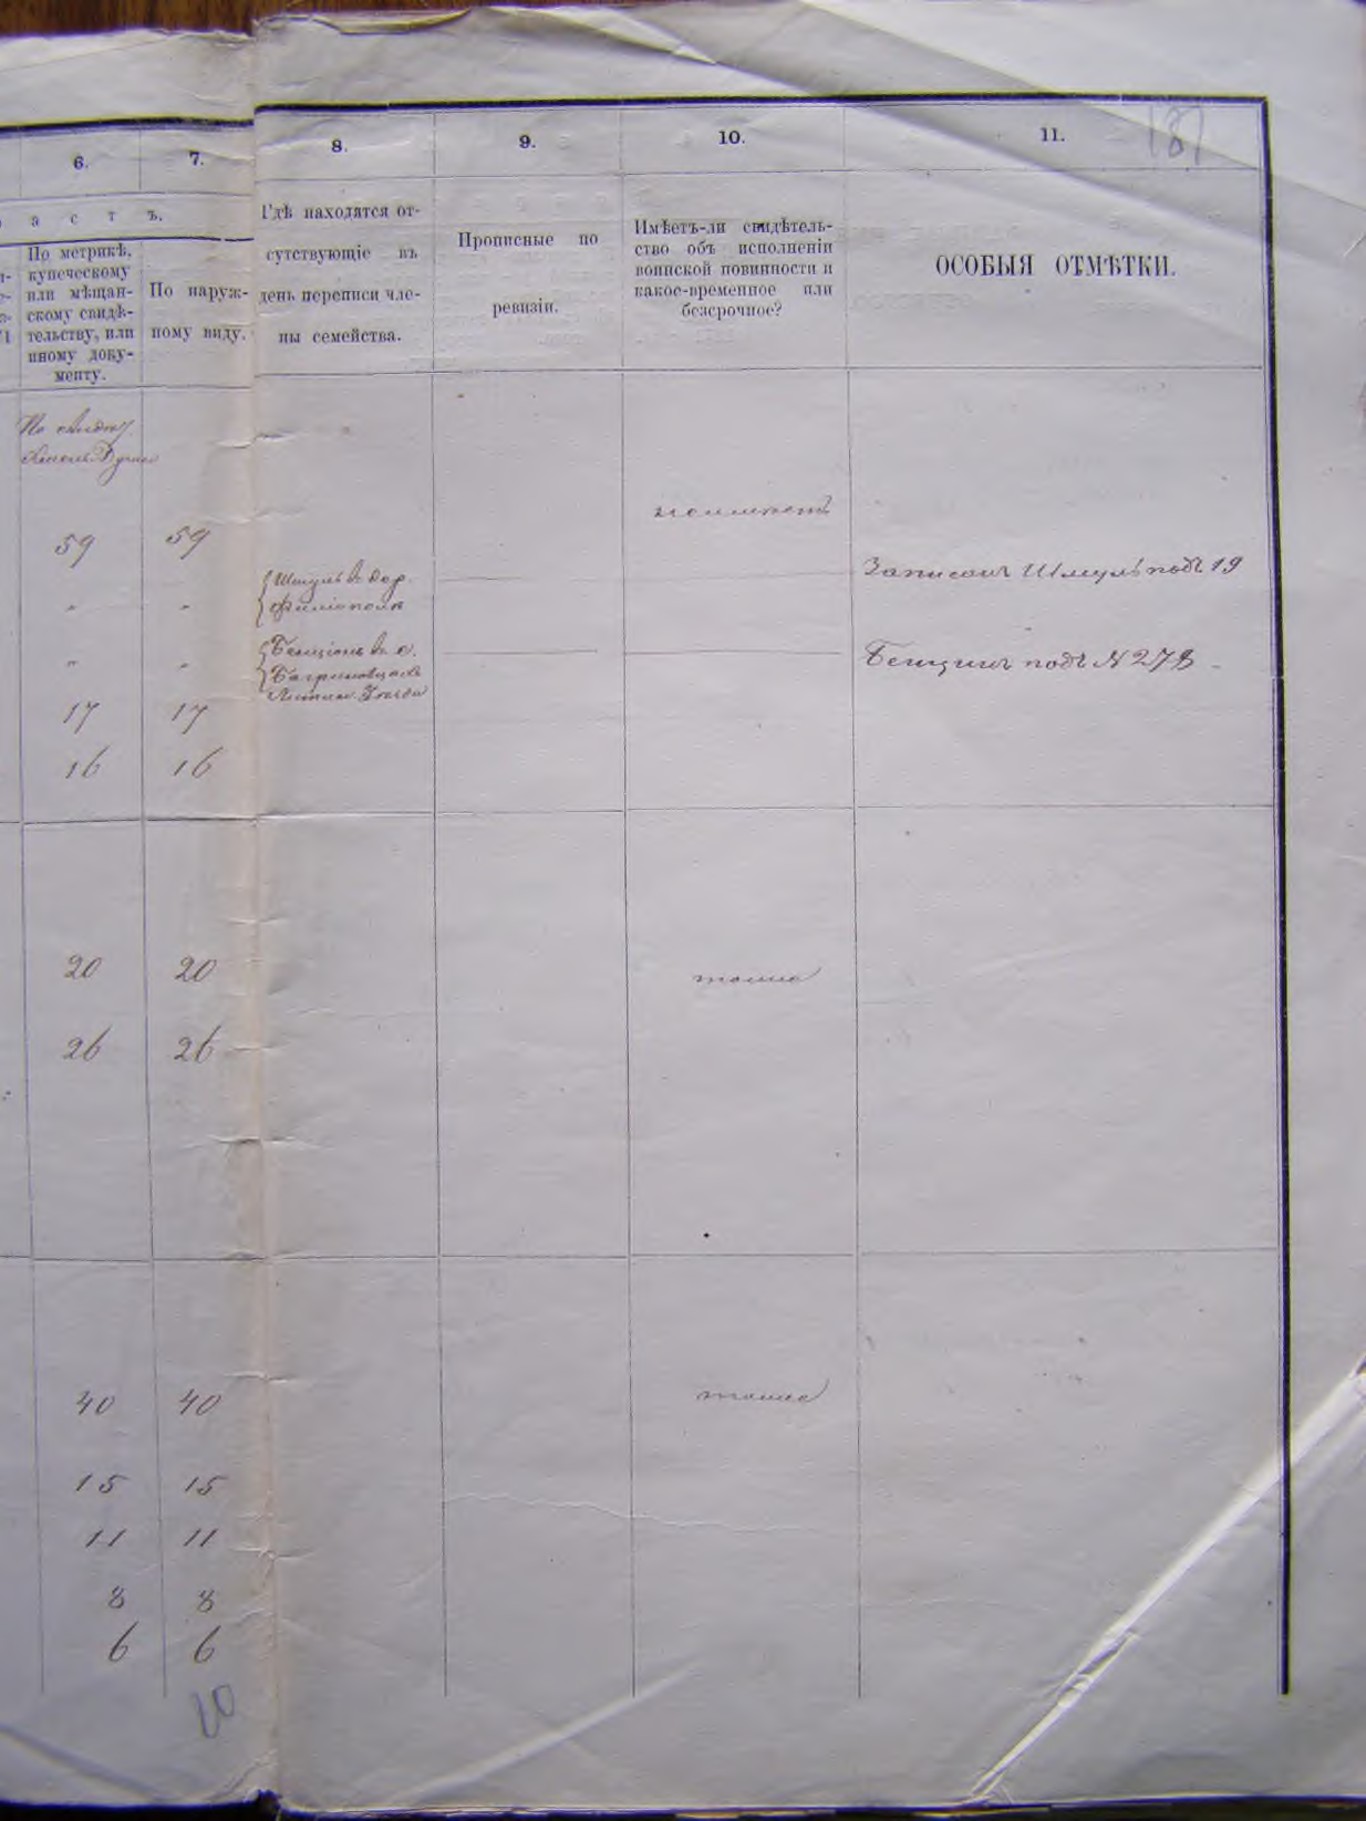 187
6.
7.
8.
9.
10.
11.
а с т ъ.
По метрикѣ,
купеческому
или мѣщан-
скому свидѣ-
тельству, или
иному доку-
менту.
По наруж-
ному виду.
Гдѣ находятся от-
сутствующіе въ
день переписи чле-
ны семейства.
Прописные по
ревизіи.
Имѣетъ-ли свидѣтель-
ство объ исполненіи
воинской повинности и
какое-временное или
безсрочное?
ОСОБЫЯ ОТМѢТКИ.
По
59 59
Шмуль в
" "
Записанъ Шмуль подъ 19
" "
Бенціонъ в с.
Бенціонъ подъ N 278
17 17
16 16
20 20
26 26
40 40
15 15
11 11
8 8
6 6
20